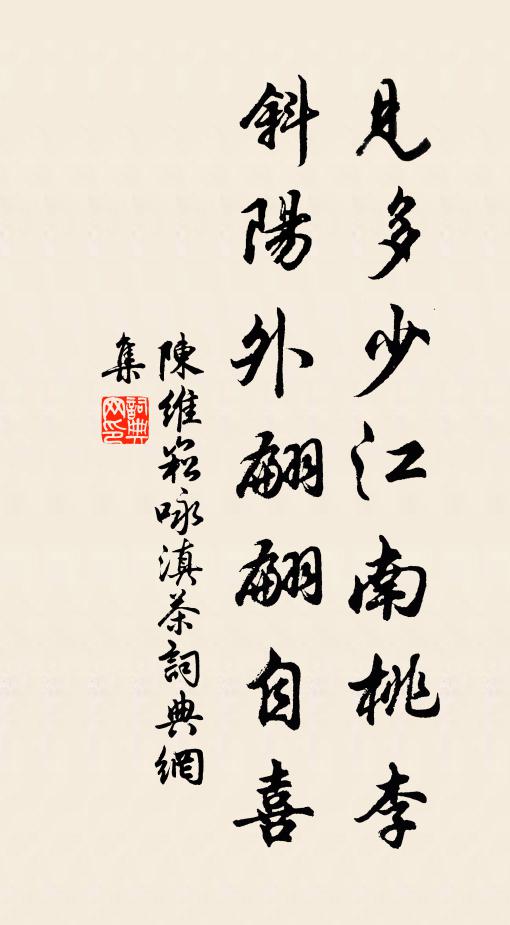 見多少江南桃李
斜陽外翩翩自喜
陳維崧詠滇茶詞典網
集
詞典網印